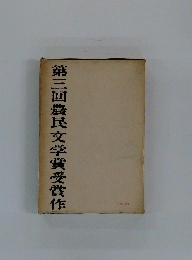 第三回農民文学賞受賞作